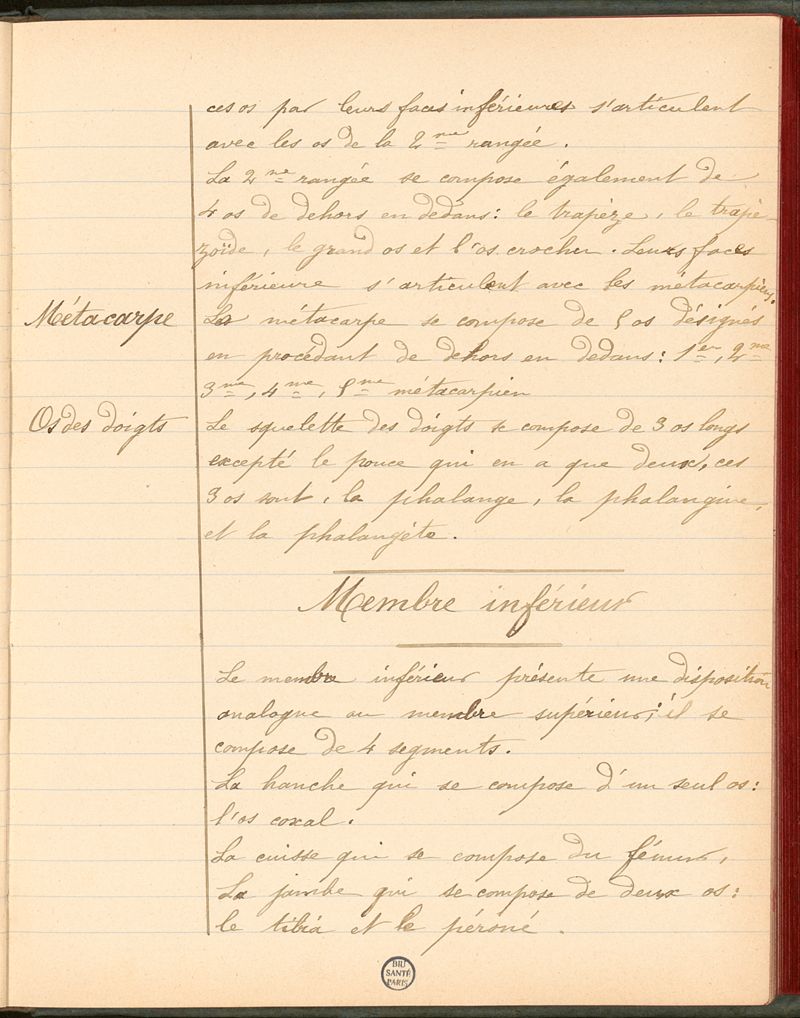 ces os par leurs faces inférieures s'articulent
avec les os de la 2me rangée.
La 2me rangée se compose également de
4 os de dehors en dedans : le trapèze, le trapé-
zoïde, le grand os et l'os crochu. Leurs faces
inférieure s'articulent avec les métacarpiens.
Métacarpe
Le métacarpe se compose de 5 os désignés
en procédant de dehors en dedans : 1er, 2me
3me, 4me, 5me métacarpien
Os des doigts
Le squelette des doigts se compose de 3 os longs
excepté le pouce qui en a que deux, ces
3 os sont, la phalange, la phalangine,
et la phalangète.
Membre inférieur
Le membre inférieur présente une disposition
analogue au membre supérieur; il se
compose de 4 segments.
La hanche qui se compose d'un seul os :
l'os coxal.
La cuisse qui se compose du fémur,
La jambe qui se compose de deux os :
le tibia et le péroné.
BIU
SANTÉ
PARIS